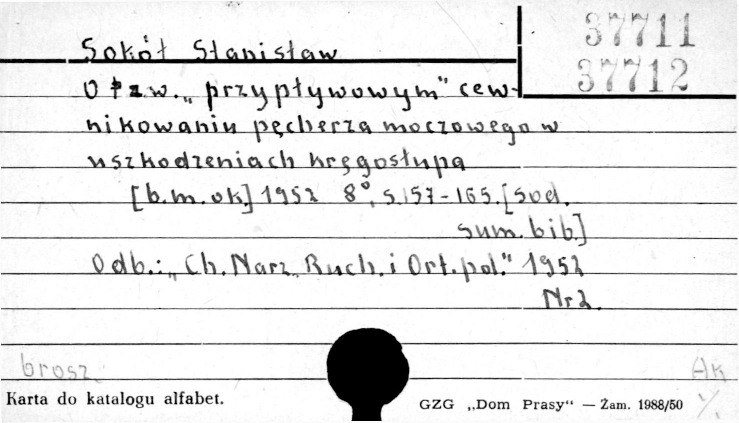 Sokół Stanisław
37711
37712
O tzw. „przypływowym" cew-
nikowaniu pęcherza moczowego w
uszkodzeniach kręgosłupa
[b.m.ok] 1952 8°, s.157-165. [
sum. bib]
Odb.: „Ch. Narz. Ruch. i Ort. pol." 1952
Nr 2.
brosz.
AK
Karta do katalogu alfabet.
GZG „Dom Prasy" — Żam. 1988/50